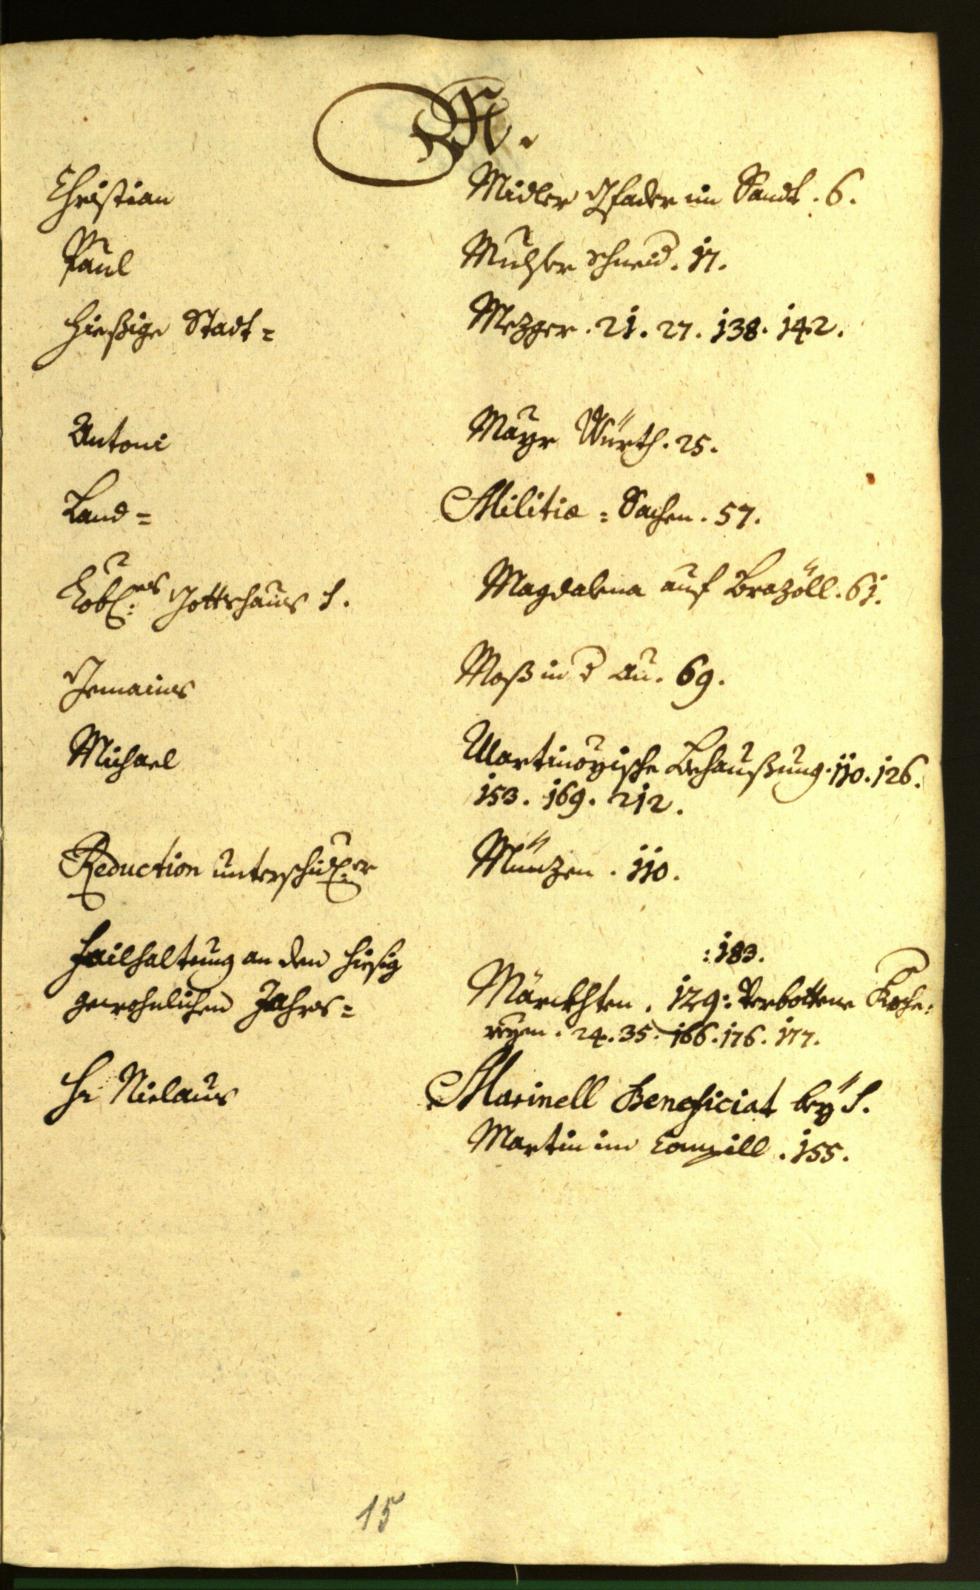 M.
Christian Midler Pfader im Sandt. 6.
Paul Mulser Schneid. 17.
hießige Stadt= Mezger. 21. 27. 138. 142.
Antoni Mayr Würth. 25.
Land= Militiæ=Sachen. 57.
Löbl: Gottshaus S. Magdalena auf Brazöll. 61.
Gemaines Moß in d Au. 69.
Michael Martinoyische Behaußung. 110. 126.
153. 169. 212.
Reduction unterschidl:er Münzen. 110.
failhaltung an den hiesig :183.
gewohnlichen Jahrs= Märckhten. 129: Verbottene
24. 35. 166. 176. 177.
Hr Niclaus Marinell Beneficiat bey S.
Martin im Campill. 155.
15